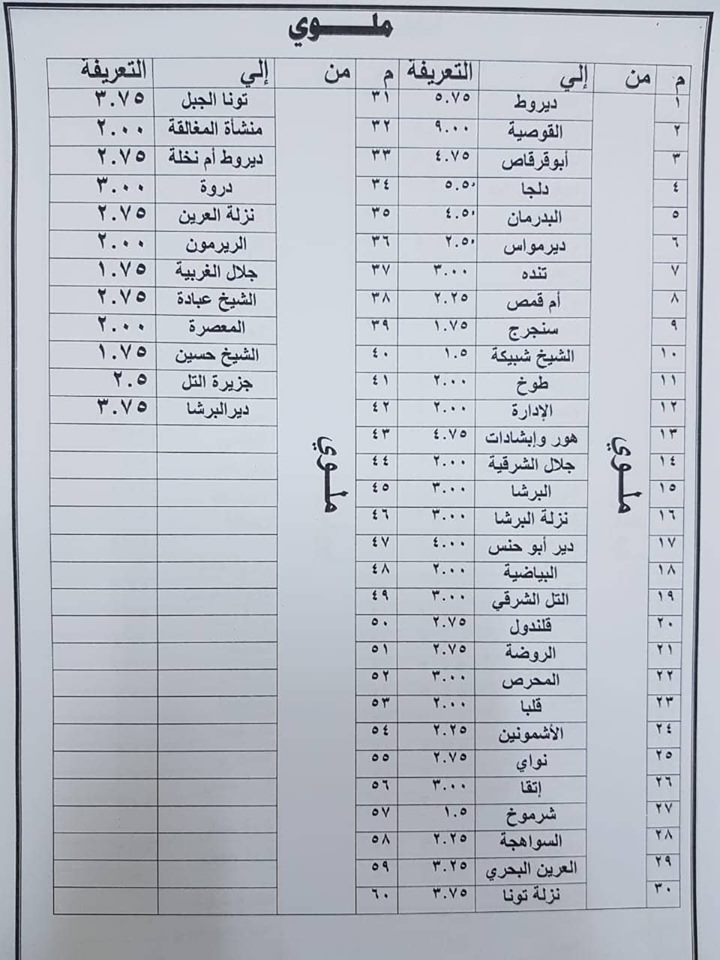 ملوي
م من إلي التعريفة م من إلي التعريفة
١ ديروط ٥.٧٥ ٣١ تونا الجبل ٣.٧٥
٢ القوصية ٩.٠٠ ٣٢ منشأة المغالقة ٢.٠٠
٣ أبوقرقاص ٤.٧٥ ٣٣ ديروط أم نخلة ٢.٧٥
٤ دلجا ٥.٥٠ ٣٤ دروة ٣.٠٠
٥ البدرمان ٤.٥٠ ٣٥ نزلة العرين ٢.٧٥
٦ ديرمواس ٢.٥٠ ٣٦ الريرمون ٢.٠٠
٧ تنده ٣.٠٠ ٣٧ جلال الغربية ١.٧٥
٨ أم قمص ٢.٢٥ ٣٨ الشيخ عبادة ٢.٧٥
٩ سنجرج ١.٧٥ ٣٩ المعصرة ٢.٠٠
١٠ الشيخ شبيكة ١.٥ ٤٠ الشيخ حسين ١.٧٥
١١ طوخ ٢.٠٠ ٤١ جزيرة التل ٢.٥
١٢ الإدارة ٢.٠٠ ٤٢ ديرالبرشا ٣.٧٥
١٣ ملوي هور وإبشادات ٤.٧٥ ٤٣ ملوي
١٤ جلال الشرقية ٢.٠٠ ٤٤
١٥ البرشا ٣.٠٠ ٤٥
١٦ نزلة البرشا ٣.٠٠ ٤٦
١٧ دير أبو حنس ٤.٠٠ ٤٧
١٨ البياضية ٢.٠٠ ٤٨
١٩ التل الشرقي ٣.٠٠ ٤٩
٢٠ قلندول ٢.٧٥ ٥٠
٢١ الروضة ٢.٧٥ ٥١
٢٢ المحرص ٣.٠٠ ٥٢
٢٣ قلبا ٢.٠٠ ٥٣
٢٤ الأشمونين ٢.٢٥ ٥٤
٢٥ نواي ٢.٧٥ ٥٥
٢٦ إتقا ٣.٠٠ ٥٦
٢٧ شرموخ ١.٥ ٥٧
٢٨ السواهجة ٢.٢٥ ٥٨
٢٩ العرين البحري ٣.٢٥ ٥٩
٣٠ نزلة تونا ٣.٧٥ ٦٠